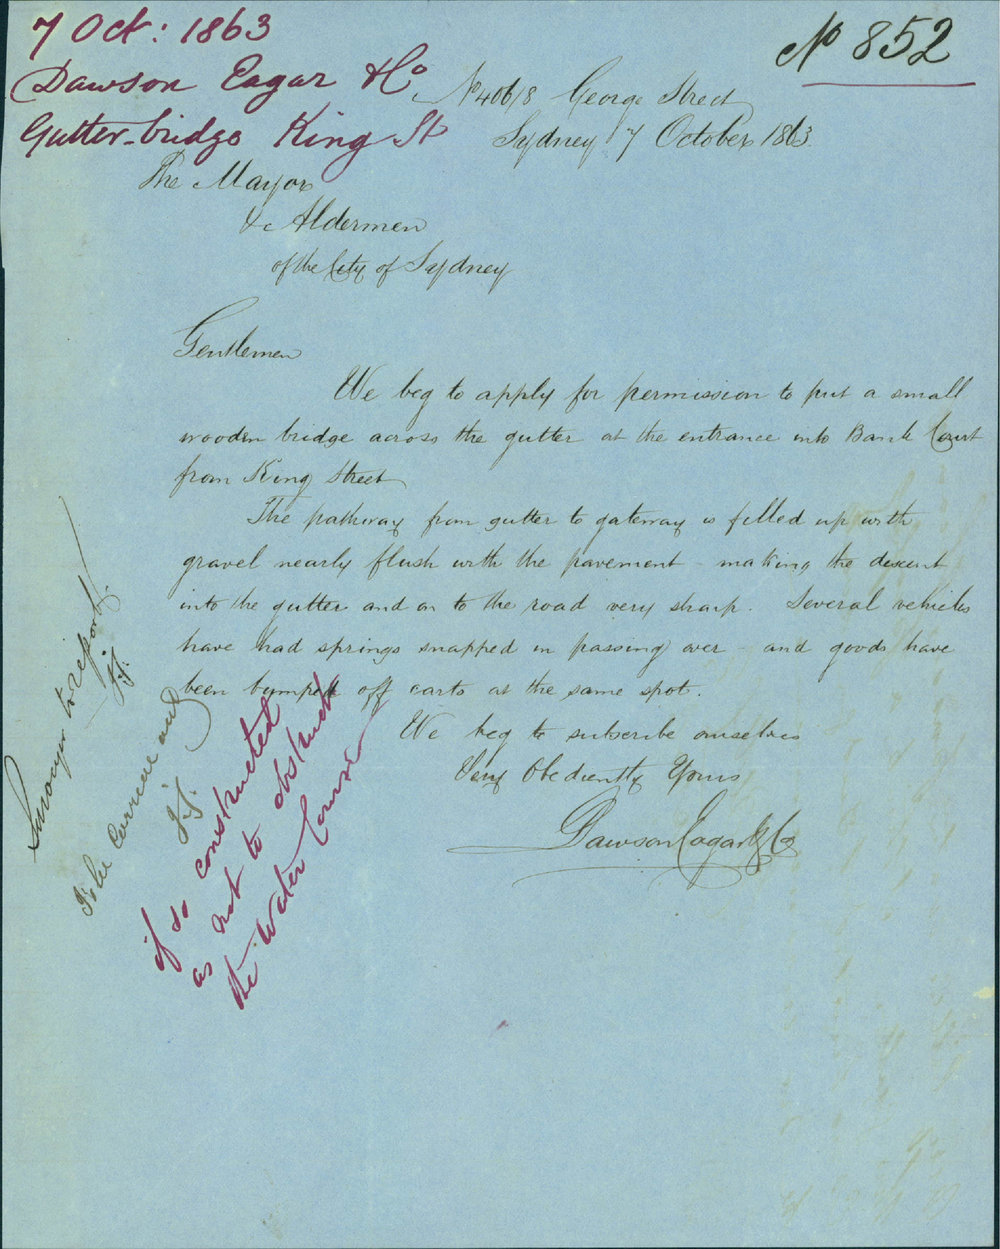 7 Oct: 1863
Dawson Eagar & Co
Gutter-bridge King St
No 852
No 406/8 George Street
Sydney 7 October 1863.
The Mayor
& Aldermen
of the City of Sydney
Gentlemen
We beg to apply for permission to put a small
wooden bridge across the gutter at the entrance into Bank Court
from King Street
The pathway from gutter to gateway is filled up with
gravel nearly flush with the pavement - making the descent
into the gutter and on to the road very sharp. Several vehicles
have had springs snapped in passing over - and goods have
been bumped off carts at the same spot.
We beg to subscribe ourselves
Very Obediently Yours
Dawson Eagar & Co
Surveyor to report.
To be
if so constructed
as not to obstruct
the Water Course